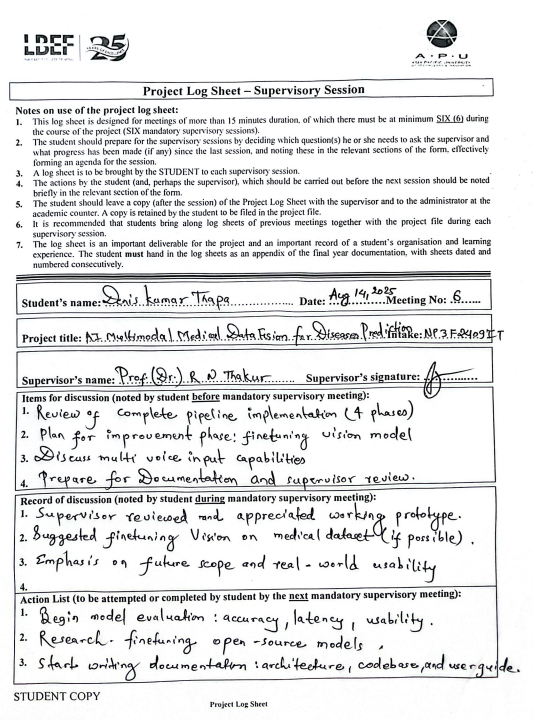 LBEF 25
A · P · U
Project Log Sheet – Supervisory Session
Notes on use of the project log sheet:
1. This log sheet is designed for meetings of more than 15 minutes duration, of which there must be at minimum SIX (6) during
the course of the project (SIX mandatory supervisory sessions).
2. The student should prepare for the supervisory sessions by deciding which question(s) he or she needs to ask the supervisor and
what progress has been made (if any) since the last session, and noting these in the relevant sections of the form, effectively
forming an agenda for the session.
3. A log sheet is to be brought by the STUDENT to each supervisory session.
4. The actions by the student (and, perhaps the supervisor), which should be carried out before the next session should be noted
briefly in the relevant section of the form.
5. The student should leave a copy (after the session) of the Project Log Sheet with the supervisor and to the administrator at the
academic counter. A copy is retained by the student to be filed in the project file.
6. It is recommended that students bring along log sheets of previous meetings together with the project file during each
supervisory session.
7. The log sheet is an important deliverable for the project and an important record of a student's organisation and learning
experience. The student must hand in the log sheets as an appendix of the final year documentation, with sheets dated and
numbered consecutively.
Student's name: Denis kumar Thapa Date: Aug 14, 2025 Meeting No: 6
Project title: AI Multimodal Medical Data Fusion for Diseases Prediction Intake: NP3F2409IT
Supervisor's name: Prof. (Dr.) R N Thakur Supervisor's signature:
Items for discussion (noted by student before mandatory supervisory meeting):
1. Review of complete pipeline implementation (4 phases)
2. Plan for improvement phase: finetuning vision model
3. Discuss multi voice input capabilities
4. Prepare for Documentation and supervisor review.
Record of discussion (noted by student during mandatory supervisory meeting):
1. Supervisor reviewed and appreciated working prototype.
2. Suggested finetuning Vision on medical dataset (if possible).
3. Emphasis on future scope and real-world usability
4.
Action List (to be attempted or completed by student by the next mandatory supervisory meeting):
1. Begin model evaluation: accuracy, latency, usability.
2. Research - finetuning open-source models.
3. Start writing documentation: architecture, codebase, and user guide.
STUDENT COPY
Project Log Sheet